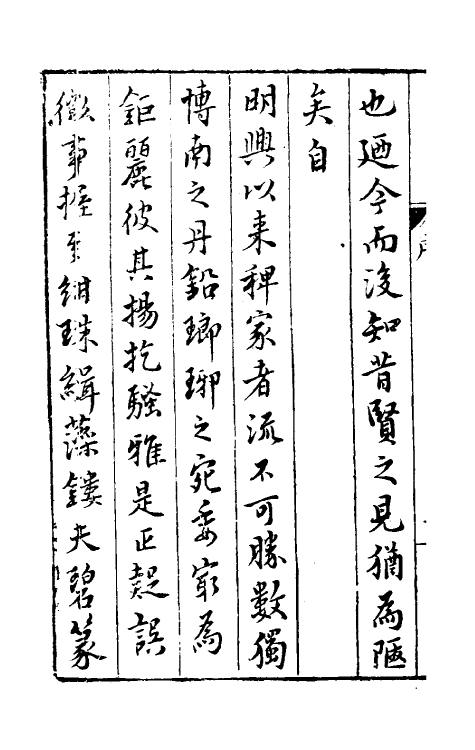 也廼今而後知昔賢之見猶為陋
矣自
明興以來稗家者流不可勝數獨
博南之丹鉛瑯琊之宛委窮為
鉅麗彼其揚扢騷雅是正疑誤
徵事握紺珠緝藻鏤夫碧篆